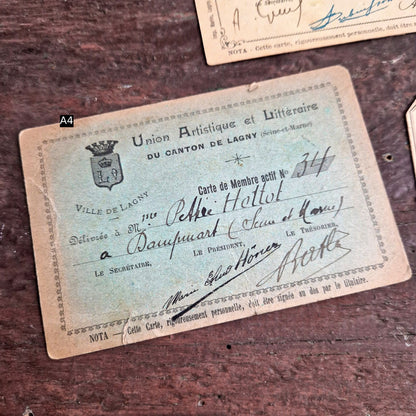 A4
NOTA - Cette carte, rigoureusement personnelle, doit être
Union Artistique et Littéraire
DU CANTON DE LAGNY (Seine-et-Marne)
VILLE DE LAGNY
Carte de Membre actif No 34
Délivrée à Mme Hottot
à Dampmart (Seine et Marne)
LE SECRÉTAIRE, LE PRÉSIDENT, LE TRÉSORIER,
NOTA — Cette Carte, rigoureusement personnelle, doit être signée au dos par le titulaire.